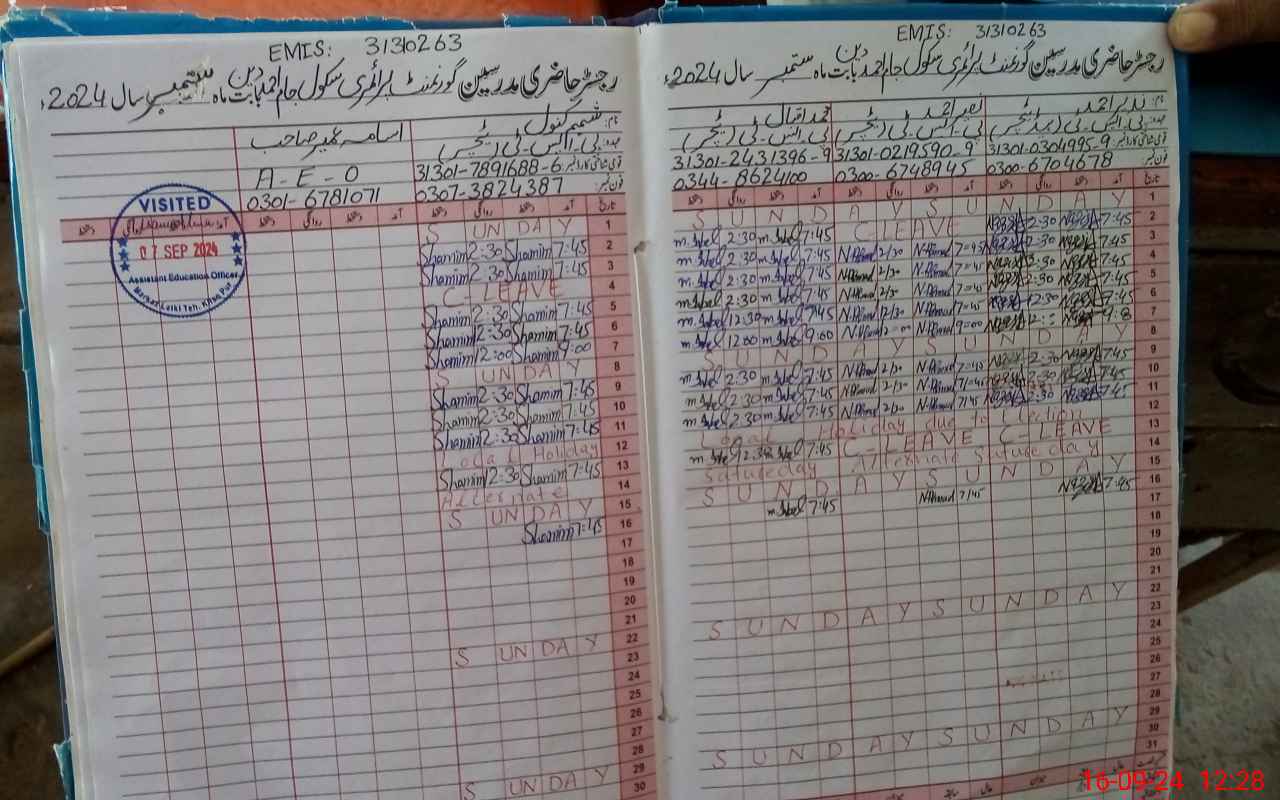 EMIS: 31310263
رجسٹر حاضری مدرسین گورنمنٹ پرائمری سکول جام احمد دین بابت ماہ ستمبر سال 2024ء
نام: شمیم کنول
اسامہ عمیر صاحب
عہدہ: پی۔ایس۔ٹی (ٹیچر)
31301-7891688-6
A-E-O
فون نمبر: 0307-3824387
0301-6781071
تاریخ آمد دستخط روانگی دستخط آمد دستخط روانگی دستخط
VISITED
07 SEP 2024
Assistant Education Officer
1 S UN DA Y
2 Shamim 2:30 Shamim 7:45
3 Shamim 2:30 Shamim 7:45
4 C-LEAVE
5 Shamim 2:30 Shamim 7:45
6 Shamim 2:30 Shamim 7:45
7 Shamim 12:00 Shamim 9:00
8 S UN DAY
9 Shamim 2:30 Shamim 7:45
10 Shamim 2:30 Shamim 7:45
11 Shamim 2:30 Shamim 7:45
12 Local Holiday
13 Shamim 12:30 Shamim 7:45
14 Alternate
15 S UN DA Y
16 Shamim 7:45
17
18
19
20
21
22 S UN DA Y
23
24
25
26
27
28
29 S UN DA Y
30
EMIS: 31310263
رجسٹر حاضری مدرسین گورنمنٹ پرائمری سکول جام احمد دین بابت ماہ ستمبر سال 2024ء
نام: نذیر احمد
نصیر احمد
محمد اقبال
عہدہ: پی۔ایس۔ٹی (ہیڈ ٹیچر)
پی۔ایس۔ٹی (ٹیچر)
پی۔ایس۔ٹی (ٹیچر)
31301-2431396-9 31301-0219590-9 31301-0304995-9
0344-8624100 0300-6748945 0300-6704678
1 S U N D A Y S U N D A Y
2 m.Iqbal 2:30 m.Iqbal 7:45 C.LEAVE 2:30 7:45
3 m.Iqbal 2:30 m.Iqbal 7:45 N.Ahmad 2/30 N.Ahmad 7=45 2:30 7:45
4 m.Iqbal 2:30 m.Iqbal 7:45 N.Ahmad 2/30 N.Ahmad 7=45 2:30 7:45
5 m.Iqbal 2:30 m.Iqbal 7:45 N.Ahmad 2/30 N.Ahmad 7=45 2:30 7:45
6 m.Iqbal 12:30 m.Iqbal 7:45 N.Ahmad 2/30 N.Ahmad 7=45 12:30 7:45
7 m.Iqbal 12:00 m.Iqbal 9:00 N.Ahmad 12=00 N.Ahmad 9=00
8 S U N D A Y S U N D A Y
9 m.Iqbal 2:30 m.Iqbal 7:45 N.Ahmad 2/30 N.Ahmad 7=45 2:30 7:45
10 m.Iqbal 2:30 m.Iqbal 7:45 N.Ahmad 2/30 N.Ahmad 7=45 2:30 7:45
11 m.Iqbal 2:30 m.Iqbal 7:45 N.Ahmad 2/30 N.Ahmad 7/45 2:30 7:45
12 Local Holiday due to Election
13 m.Iqbal 12:30 m.Iqbal 7:45 C-LEAVE C-LEAVE
14 Satureday Alternate Satureday
15 S U N D A Y S U N D A Y
16 m.Iqbal 7:45 N.Ahmad 7/45 7:45
17
18
19
20
21
22 S U N D A Y S U N D A Y
23
24
25
26
27
28
29 S U N D A Y S U N D A Y
30
31
16-09-24 12:28